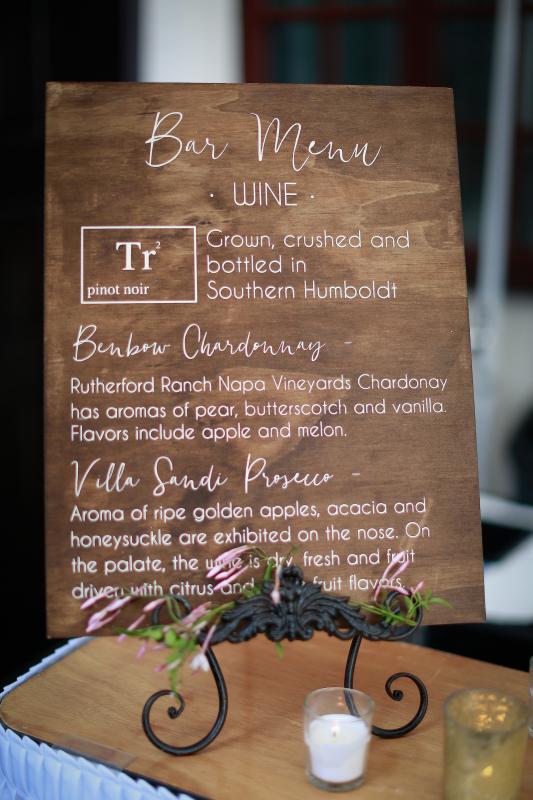 Bar Menu
· WINE ·
Tr²
pinot noir
Grown, crushed and
bottled in
Southern Humboldt
Benbow Chardonnay -
Rutherford Ranch Napa Vineyards Chardonay
has aromas of pear, butterscotch and vanilla.
Flavors include apple and melon.
Villa Sandi Prosecco -
Aroma of ripe golden apples, acacia and
honeysuckle are exhibited on the nose. On
the palate, the wine is dry, fresh and fruit
driven with citrus and fruit flavors.